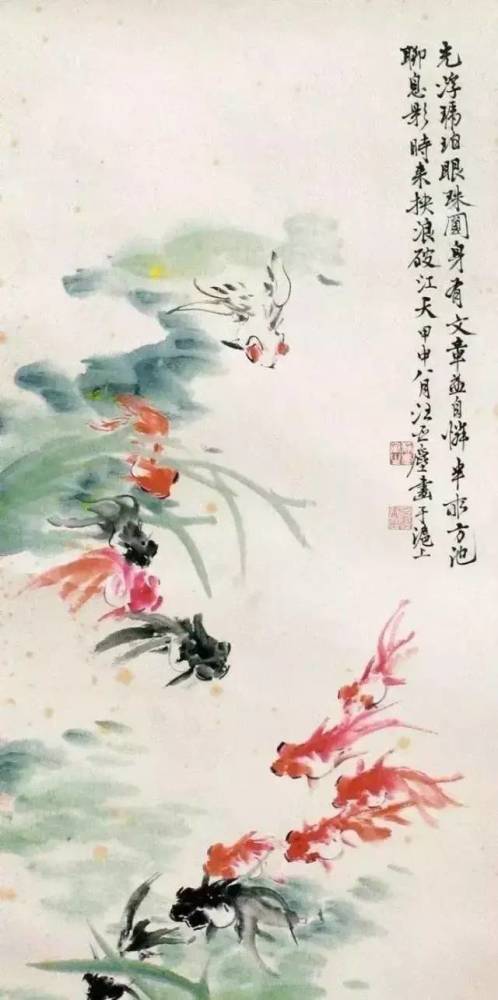 光浮琥珀眼珠圆身有文章益自怜半亩方池
聊息影時来挾浪破江天甲申八月汪亞塵畫于滬上